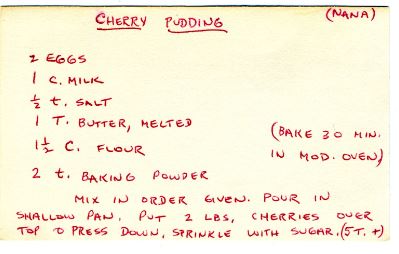 CHERRY PUDDING (NANA)
2 EGGS
1 C. MILK
½ t. SALT
1 T. BUTTER, MELTED
1½ C. FLOUR
2 t. BAKING POWDER
(BAKE 30 MIN.
IN MOD. OVEN)
MIX IN ORDER GIVEN. POUR IN
SHALLOW PAN. PUT 2 LBS, CHERRIES OVER
TOP & PRESS DOWN, SPRINKLE WITH SUGAR. (5 T. +)